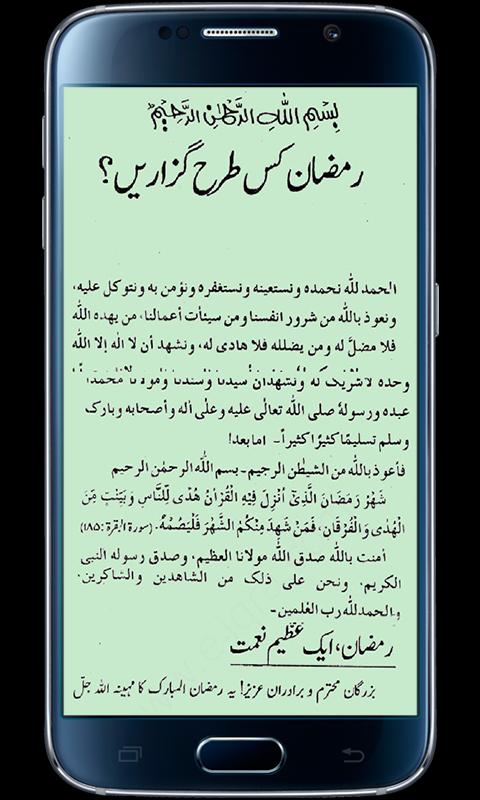 بِسْمِ اللهِ الرَّحْمٰنِ الرَّحِيْمِ
رمضان کس طرح گزاریں؟
الحمد للّٰه نحمده ونستعينه ونستغفره ونؤمن به ونتوكل عليه،
ونعوذ باللّٰه من شرور انفسنا ومن سيئات أعمالنا، من يهده اللّٰه
فلا مضلّ له ومن يضلله فلا هادى له، ونشهد أن لا اله إلا اللّٰه
وحده لاشريك له ونشهدان سيدنا وسندنا ومولانا محمدا
عبده ورسولهٗ صلى اللّٰه تعالٰى عليه وعلٰى اٰله وأصحابه وبارك
وسلم تسليمًا كثيرًا كثيراً- امابعد!
فاعوذ باللّٰه من الشيطٰن الرجيم- بسم اللّٰه الرحمٰن الرحيم
شَهْرُ رَمَضَانَ الَّذِيْٓ اُنْزِلَ فِيْهِ الْقُرْاٰنُ هُدًى لِّلنَّاسِ وَبَيِّنٰتٍ مِّنَ
الْهُدٰى وَالْفُرْقَانِ، فَمَنْ شَهِدَ مِنْكُمُ الشَّهْرَ فَلْيَصُمْهُ. (سورة البقرة: ۱۸۵)
أمنت باللّٰه صدق اللّٰه مولانا العظيم، وصدق رسوله النبى
الكريم، ونحن على ذلك من الشاهدين والشاكرين،
والحمدللّٰه رب العٰلمين-
رمضان، ایک عظیم نعمت
بزرگان محترم و برادران عزیز! یہ رمضان المبارک کا مہینہ اللہ جلّ